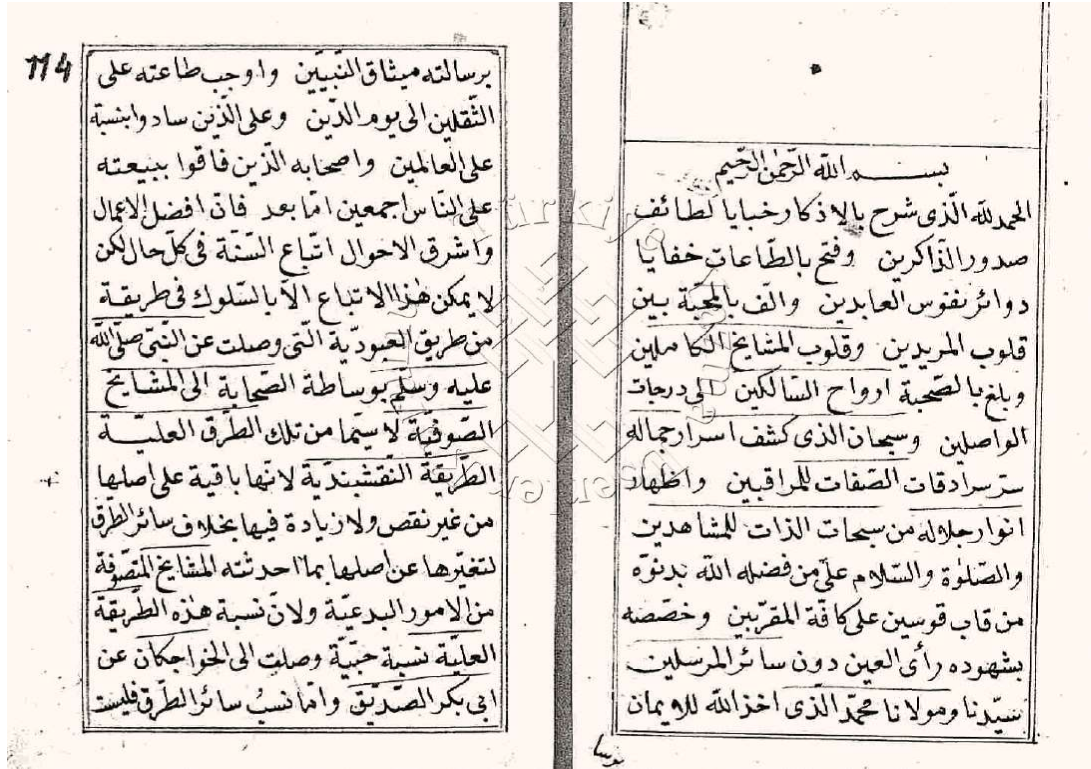 بسم الله الرّحمٰن الرّحيم
الحمد لله الّذى شرح بالاذكار خبايا لطائف
صدور الذّاكرين وفتح بالطّاعات خفايا
دوائر نفوس العابدين والّف بالمحبّة بين
قلوب المريدين وقلوب المشايخ الكاملين
وبلغ بالصّحبة ارواح السّالكين الى درجات
الواصلين وسبحان الذى كشف اسرار جماله
ستر سرادقات الصّفات للمراقبين واظهار
انوار جلاله من سبحات الذات للمشاهدين
والصّلوٰة والسّلام علىٰ من فضله الله بدنوّه
من قاب قوسين على كافّة المقرّبين وخصّصه
بشهوده رأى العين دون سائر المرسلين
سيّدنا ومولانا محمّد الّذى اخذ الله للايمان
114
برسالته ميثاق النّبيّين واوجب طاعته على
الثّقلين الى يوم الدّين وعلى الّذين سادوا بنسبة
على العالمين واصحابه الّذين فاقوا ببيعته
على النّاس اجمعين امّا بعد فانّ افضل الاعمال
واشرق الاحوال اتّباع السّنّة فى كلّ حال لكن
لا يمكن هٰذا الاتباع الّا بالسّلوك فى طريقة
من طريق العبوديّة الّتى وصلت عن النّبىّ صلّى الله
عليه وسلّم بوساطة الصّحابة الى المشايخ
الصّوفيّة لا سيّما من تلك الطّرق العليّة
الطّريقة النّقشبنديّة لانّها باقية على اصلها
من غير نقص ولا زيادة فيها بخلاف سائر الطّرق
لتغيّرها عن اصلها بما احدثته المشايخ المتصوّفة
من الامور البدعيّة ولانّ نسبة هٰذه الطّريقة
العليّة نسبة حبّيّة وصلت الى الخواجكان عن
ابى بكر الصّدّيق وامّا نسبُ سائر الطّرق فليست